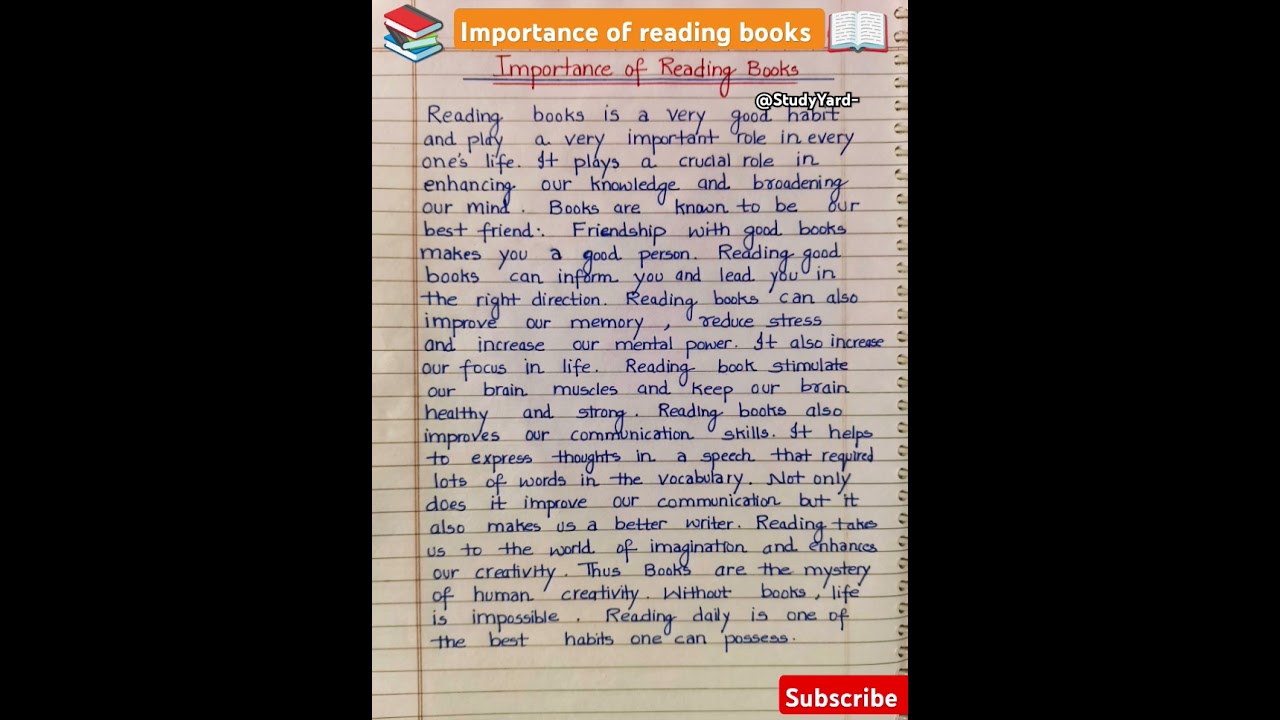 Importance of reading books
Importance of Reading Books
@StudyYard-
Reading books is a very good habit
and play a very important role in every
one's life. It plays a crucial role in
enhancing our knowledge and broadening
our mind. Books are known to be our
best friend. Friendship with good books
makes you a good person. Reading good
books can inform you and lead you in
the right direction. Reading books can also
improve our memory, reduce stress
and increase our mental power. It also increase
our focus in life. Reading book stimulate
our brain muscles and keep our brain
healthy and strong. Reading books also
improves our communication skills. It helps
to express thoughts in a speech that required
lots of words in the vocabulary. Not only
does it improve our communication but it
also makes us a better writer. Reading takes
us to the world of imagination and enhances
our creativity. Thus Books are the mystery
of human creativity. Without books, life
is impossible. Reading daily is one of
the best habits one can possess.
Subscribe